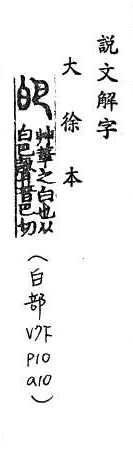 說文解字
大徐本
皅 艸華之白也从
白巴聲普巴切
(白部
V7下
P10
a10)